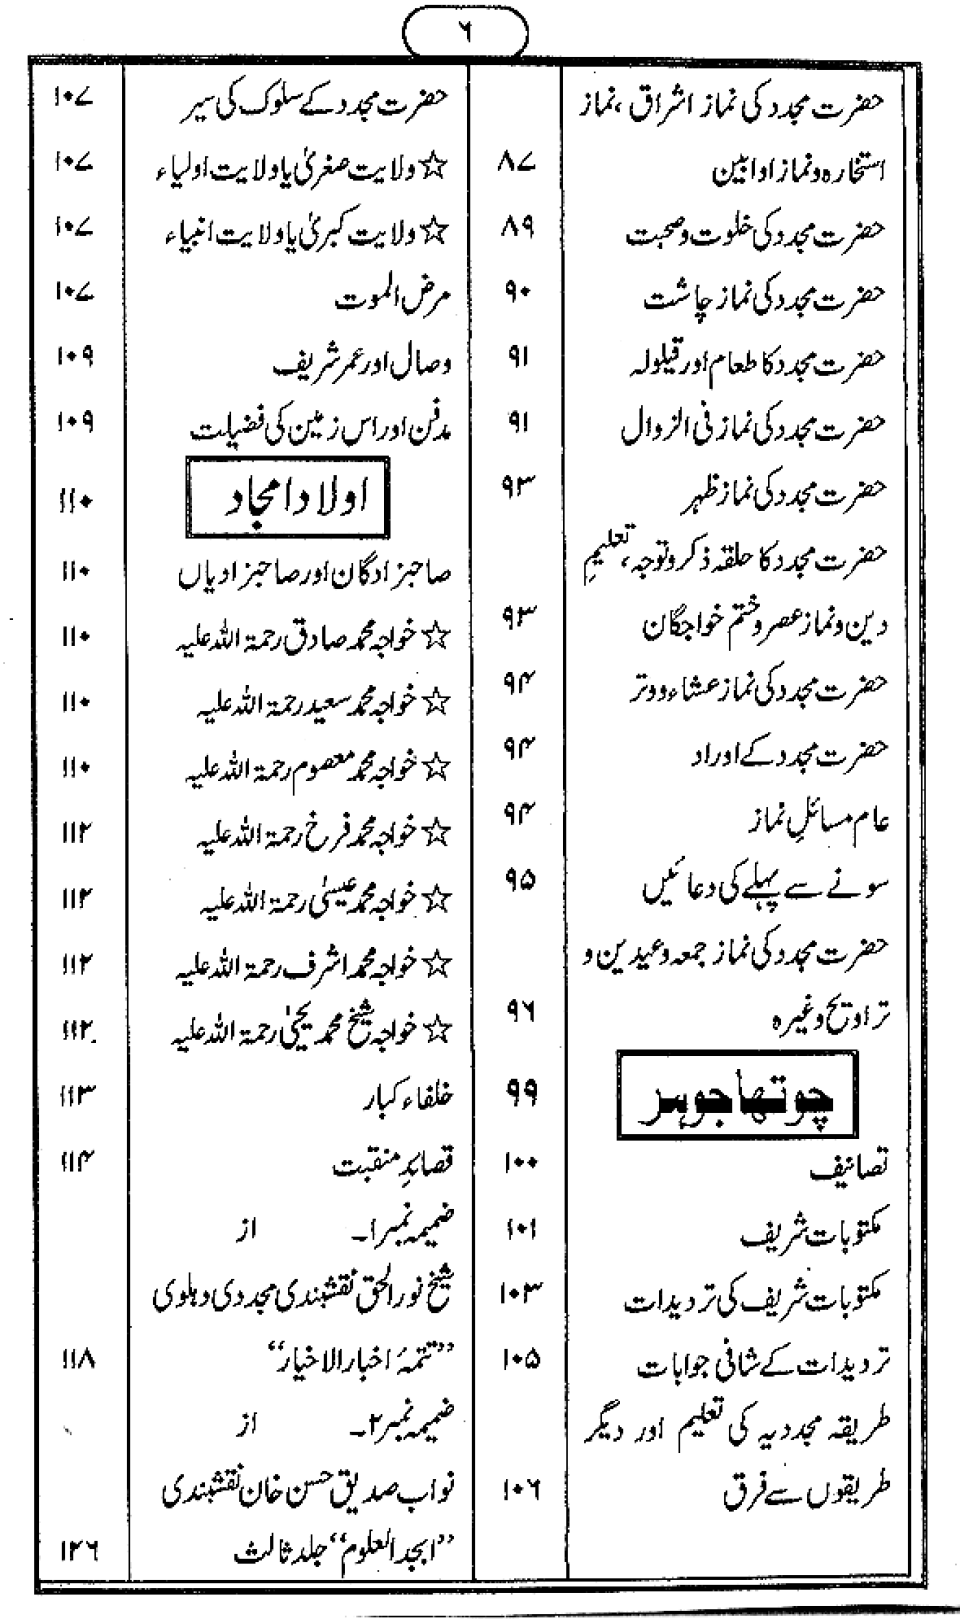 ۶
حضرت مجدد کی نماز اشراق ، نماز
استخارہ و نماز اوابین ۸۷
حضرت مجدد کی خلوت و صحبت ۸۹
حضرت مجدد کی نماز چاشت ۹۰
حضرت مجدد کا طعام اور قیلولہ ۹۱
حضرت مجدد کی نماز فی الزوال ۹۱
حضرت مجدد کی نماز ظہر ۹۳
حضرت مجدد کا حلقہ ذکر و توجہ، تعلیمِ
دین و نماز عصر و ختم خواجگان ۹۳
حضرت مجدد کی نماز عشاء و وتر ۹۴
حضرت مجدد کے اوراد ۹۴
عام مسائلِ نماز ۹۴
سونے سے پہلے کی دعائیں ۹۵
حضرت مجدد کی نماز جمعہ و عیدین و
تراویح وغیرہ ۹۶
چوتھا جوہر ۹۹
تصانیف ۱۰۰
مکتوبات شریف ۱۰۱
مکتوبات شریف کی تردیدات ۱۰۳
تردیدات کے شافی جوابات ۱۰۵
طریقہ مجددیہ کی تعلیم اور دیگر
طریقوں سے فرق ۱۰۶
حضرت مجدد کے سلوک کی سیر ۱۰۷
☆ ولایت صغریٰ یا ولایت اولیاء ۱۰۷
☆ ولایت کبریٰ یا ولایت انبیاء ۱۰۷
مرض الموت ۱۰۷
وصال اور عمر شریف ۱۰۹
مدفن اور اس زمین کی فضیلت ۱۰۹
اولاد امجاد ۱۱۰
صاحبزادگان اور صاحبزادیاں ۱۱۰
☆ خواجہ محمد صادق رحمۃ اللہ علیہ ۱۱۰
☆ خواجہ محمد سعید رحمۃ اللہ علیہ ۱۱۰
☆ خواجہ محمد معصوم رحمۃ اللہ علیہ ۱۱۰
☆ خواجہ محمد فرخ رحمۃ اللہ علیہ ۱۱۲
☆ خواجہ محمد عیسیٰ رحمۃ اللہ علیہ ۱۱۲
☆ خواجہ محمد اشرف رحمۃ اللہ علیہ ۱۱۲
☆ خواجہ شیخ محمد یحییٰ رحمۃ اللہ علیہ ۱۱۲
خلفاء کبار ۱۱۳
قصائدِ منقبت ۱۱۴
ضمیمہ نمبر ۱۔ از
شیخ نور الحق نقشبندی مجددی دہلوی
”تتمۂ اخبار الاخیار“ ۱۱۸
ضمیمہ نمبر ۲۔ از
نواب صدیق حسن خان نقشبندی
”ابجد العلوم“ جلد ثالث ۱۲۶